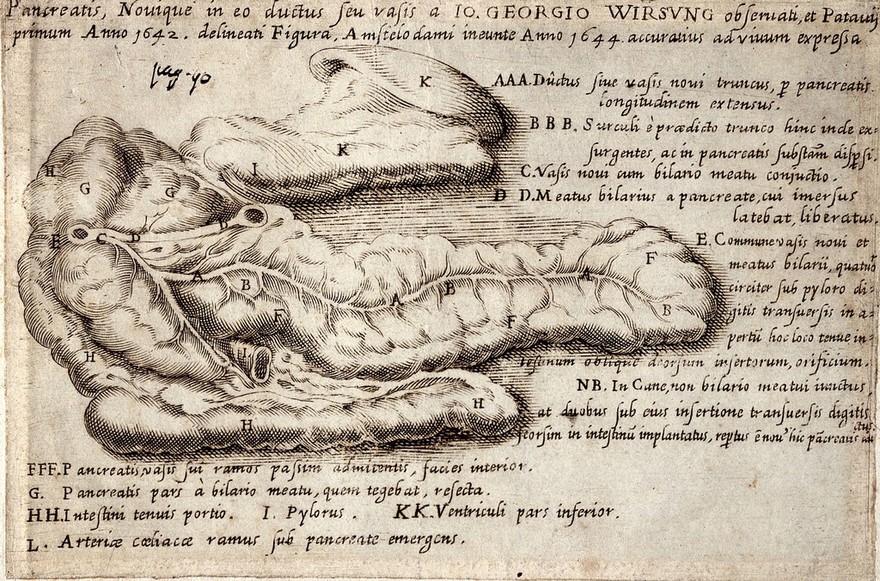 Pancreatis, Novique in eo ductus seu vasis a IO. GEORGIO WIRSVNG observati, et Patavij
primum Anno 1642. delineati Figura, Amstelodami ineunte Anno 1644. accuratius ad vivum expressa
pag. 90
AAA. Ductus sive vasis novi truncus, p pancreatis
longitudinem extensus.
BBB. Surculi è prædicto trunco hinc inde ex-
surgentes, ac in pancreatis substãm dispsi.
C. Vasis novi cum bilario meatu conjuctio.
D D. Meatus bilarius a pancreate, cui imersus
latebat, liberatus.
E. Commune vasis novi et
meatus bilarii, quatuor
circiter sub pyloro di-
gitis transversis in a-
pertũ hoc loco tenue in-
testinum oblique deorsum insertorum, orificium.
NB. In Cane, non bilario meatui iunctus
at duobus sub eius insertione transversis digitis
deorsim in intestinũ implantatus, reptus
FFF. Pancreatis, vasis sui ramos passim admitentis, facies interior.
G. Pancreatis pars à bilario meatu, quem tegebat, resecta.
HH. Intestini tenuis portio. I. Pylorus. KK. Ventriculi pars inferior.
L. Arteriæ cœliacæ ramus sub pancreate emergens.
K
K
I
H
G
G
E
C
D
D
A
B
A
B
A
F
B
F
F
L
H
H
H